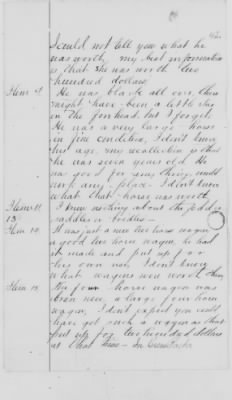 I could not tell you what he
was worth, my best information
is that she was worth two
hundred dollars.
Item 9. He was black all over, there
might have been a little star
in the forehead but I forget.
He was a very large horse
in fine condition, I dont know
his age, my recollection is that
he was seven years old. He
was good for any thing, could
work any place. I dont know
what that horse was worth.
Items 11 I know nothing about the
saddles or bridles—
Item 14. It was just a new two horse wagon
a good two horse wagon, he had
it made and put up for
his own use, I dont know
what wagons were worth then
Item 15. The four horse wagon was
new, a large four horse
wagon, I dont expect you could
have got such a wagon as that
put up for two hundred dollars
at that time—